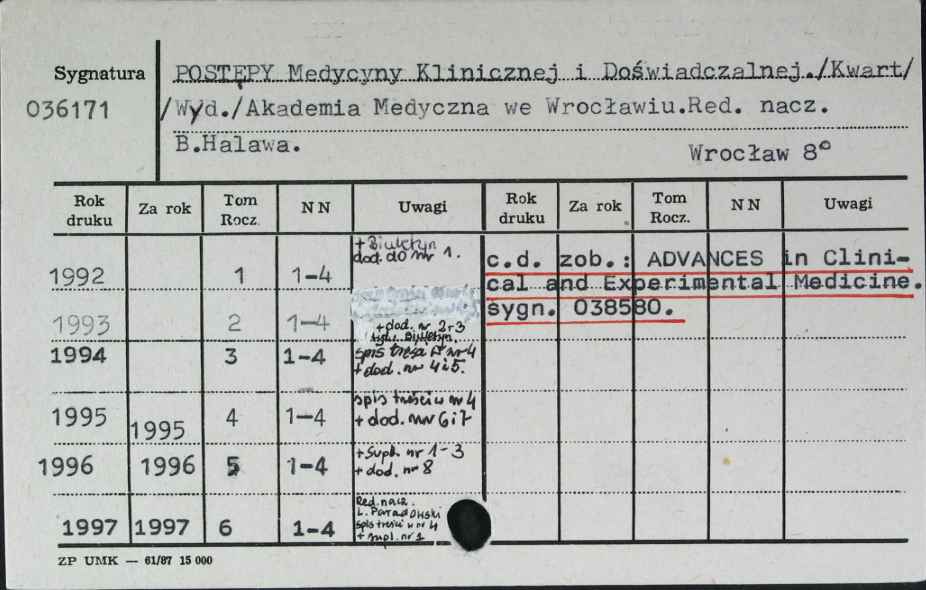 Sygnatura
036171
POSTĘPY Medycyny Klinicznej i Doświadczalnej./Kwart/
/Wyd./Akademia Medyczna we Wrocławiu.Red. nacz.
B.Halawa.
Wrocław 8°
Rok druku Za rok Tom Rocz. NN Uwagi Rok druku Za rok Tom Rocz. NN Uwagi
1992 1 1-4 + Biuletyn
dod. do nr 1.
1993 2 1-4
+ dod. nr 2 i 3
1994 3 1-4 spis treści w nr 4
+ dod. nr 4 i 5.
1995 1995 4 1-4 spis treści w nr 4
+ dod. nr 6 i 7
1996 1996 5 1-4 + Supl. nr 1-3
+ dod. nr 8
1997 1997 6 1-4 Red. nacz.
L. Paradowski
spis treści w nr 4
+ supl. nr 1
c.d. zob.: ADVANCES in Clini-
cal and Experimental Medicine.
sygn. 038580.
ZP UMK — 61/87 15 000